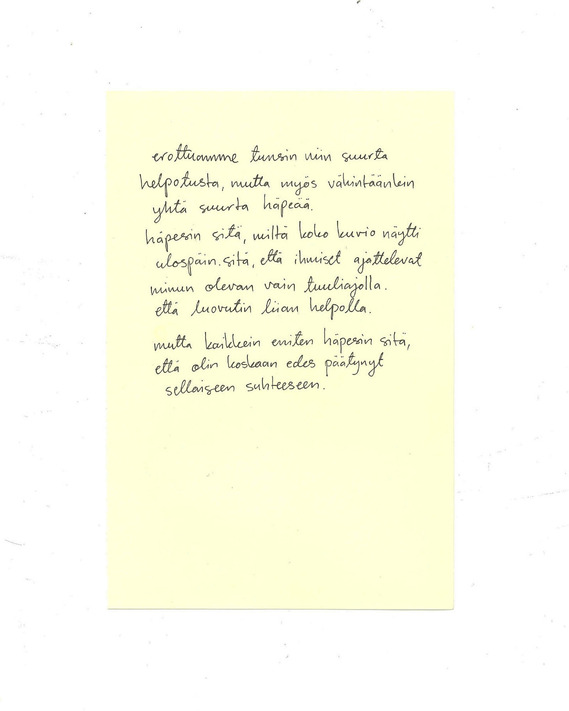 erottuamme tunsin niin suurta
helpotusta, mutta myös vähintäänkin
yhtä suurta häpeää.
häpesin sitä, miltä koko kuvio näytti
ulospäin. sitä, että ihmiset ajattelevat
minun olevan vain tuuliajolla.
että luovutin liian helpolla.
mutta kaikkein eniten häpesin sitä,
että olin koskaan edes päätynyt
sellaiseen suhteeseen.